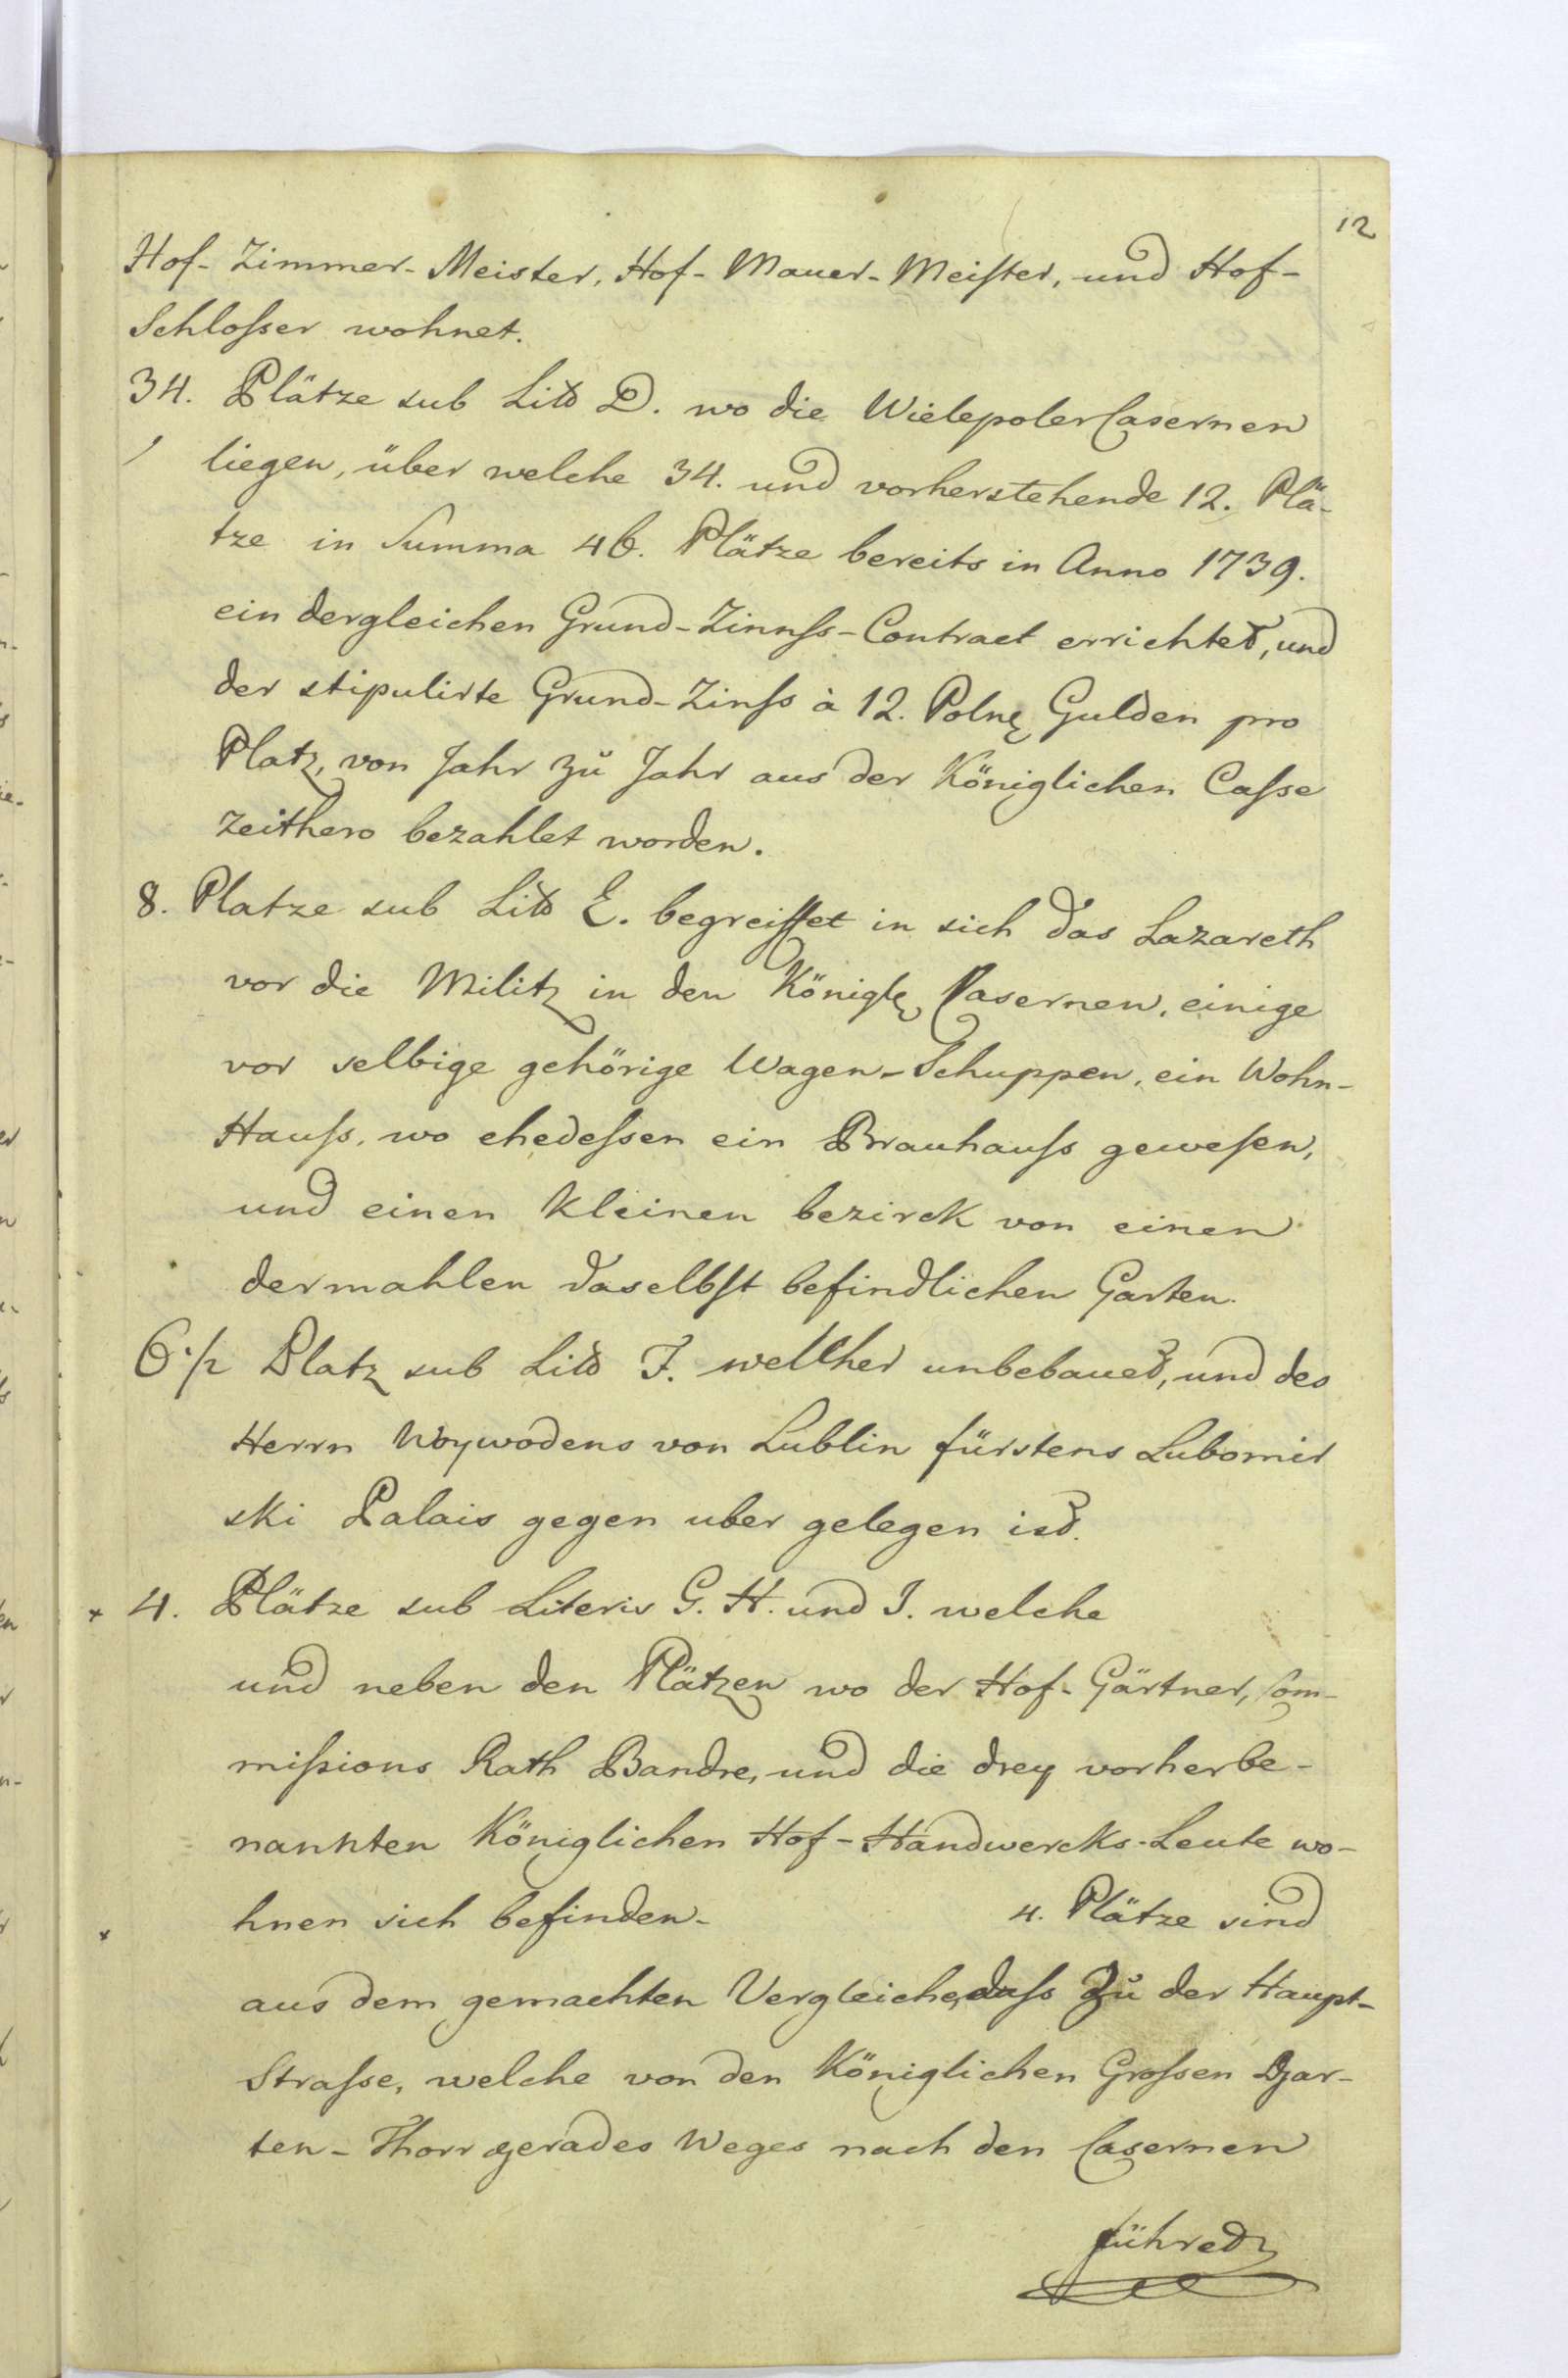 12
Hof-Zimmer-Meister, Hof-Mauer-Meister, und Hof-
Schloßer wohnet.
34. Plätze sub Litt D. wo die Wielepoler Casernen
liegen, über welche 34. und vorherstehende 12. Plä-
tze in Summa 46. Plätze bereits in Anno 1739.
ein dergleichen Grund-Zinnß-Contract errichtet, und
der stipulirte Grund-Zinß à 12. Poln. Gulden pro
Platz, von Jahr zu Jahr aus der Königlichen Caße
zeithero bezahlet worden.
8. Platze sub Litt E. begreiffet in sich das Lazareth
vor die Militz in den Königl. Casernen, einige
vor selbige gehörige Wagen-Schuppen, ein Wohn-
Hauß, wo ehedeßen ein Brauhauß gewesen,
und einen kleinen bezirck von einen
dermahlen daselbst befindlichen Garten.
6 1/2 Platz sub Litt F. wellher unbebauet, und des
Herrn Woywodens von Lublin fürstens Lubomir
ski Palais gegen uber gelegen ist.
x 4. Plätze sub Literis G. H. und I. welche
und neben den Plätzen wo der Hof-Gärtner, Com-
mißions Rath Bandre, und die drey vorherbe-
nannten Königlichen Hof-Handwercks-Leute wo-
x hnen sich befinden- 4. Plätze sind
aus dem gemachten Vergleiche, daß zu der Haupt-
Straße, welche von den Königlichen Großen Gar-
ten-Thor gerades Weges nach den Casernen
führet